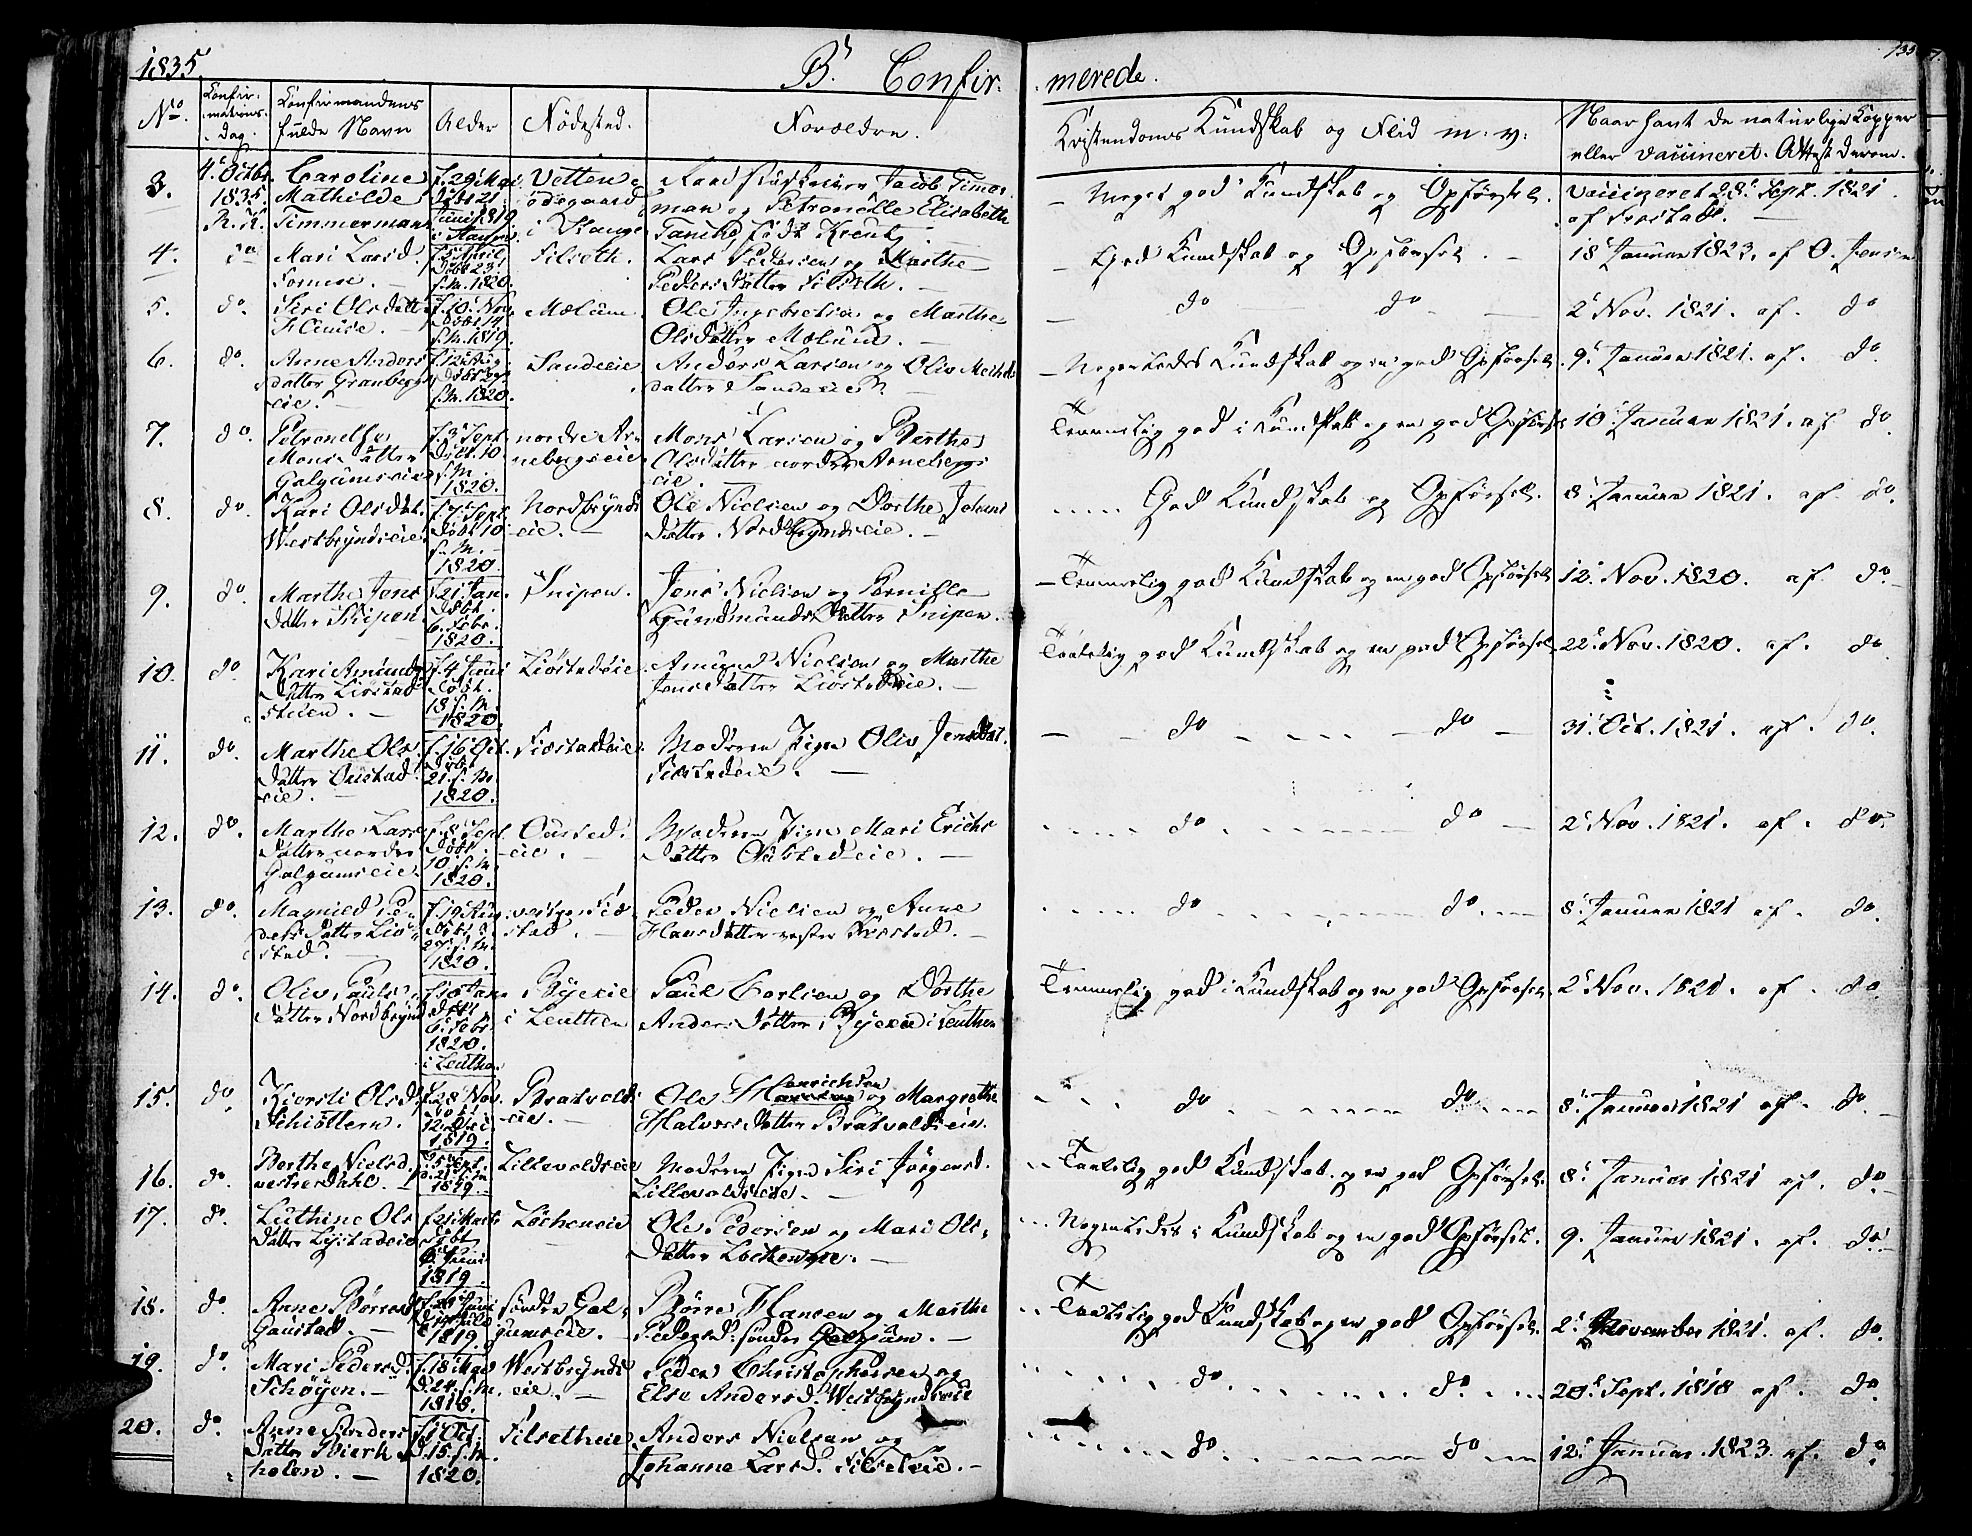 1835.
B. Confir-
merede.
No.
Confir-
mations-
Dag.
Confirmandens
fulde Navn
Alder
Födested.
Forældre.
Kristendoms Kundskab og Flid m. v:
Naar havt de naturlige Kopper
eller vaccineret. Attest derom.
3.
4. Octbr.
1835
Caroline
Mathilde
Timmerman
f. 29 Mai
Juni 1819
i Stange
Vetten
Ödegaard
i Stange
Jacob Timer-
man og Petronelle Elisabeth
født
Meget god Kundskab og Opførsel.
Vaccineret 28. Sept. 1821
4.
do
Mari Larsd.
f. 5 April
Döbt 23.
s. M. 1820.
Filseth.
Lars Pedersen og Marthe
Peders Datter Filseth.
God Kundskab og Opførsel.
18 Januar 1823. af O. Jensen
5.
do.
Siri Olsdatter
f. 10. Nov.
Döbt 14
s. M. 1819.
Mælum
Ole Ingebretsen og Marthe
Olsdatter Mælum.
do do
2 Nov. 1821. af. do
6.
do.
Anne Anders
datter Granbergs
eie.
f. 12 Aug
Döbt 29.
s. M. 1820.
Sandeeie
Anders Larsen og Oliv Michels
datter Sandeeie.
Nogenledes Kundskab og en god Opførsel.
9. Januar 1821. af. do
7.
do.
Petronelle
Mons Datter
Galgumseie
f. 3 Sept
Döbt. 10.
s. M.
1820.
nordre Ar-
nebergseie
Mons Larsen og Berthe
Olsdatter nordre Arnebergs
eie.
Temmelig god i Kundskab og en god Opførsel
10 Januar 1821. af do.
8.
do.
Kari Olsdat.
Westbryndseie
f. 7 Sept
Döbt 10
s. M.
1820.
Nordbrynds
eie.
Ole Nielsen og Dorthe Johans
datter Nordbryndseie.
God Kundskab og Opførsel.
8. Januar 1821. af. do.
9.
do.
Marthe Jens
datter Snipen
f. 21 Jan.
Döbt
6. Febr.
1820.
Snipen.
Jens Nielsen og Pernille
Gundmunds Datter Snipen.
Temmelig god Kundskab og en god Opførsel
12. Nov. 1820. af do.
10.
do
Kari Amunds
datter Liöstad
steien.
f. 4 Juni
Döbt.
18. s. M.
1820.
Liöstadeie
Amund Nielsen og Marthe
Jensdatter Liöstadeie.
Taalelig god Kundskab og en god Opførsel
22. Nov. 1820. af. do.
11.
do
Marthe Ols
datter Oustad
eie.
f. 16 Oct.
Döbt
21. s. M.
1820.
Fiæstadeie
Moderen Pigen Oliv Jensdat.
Fiæstadeie.
do do
31. Oct. 1821. af. do.
12.
do.
Marthe Lars
datter nordre
Galgumseie
f. 8 Sept.
Döbt
10. s. M.
1820.
Oustad-
eie.
Moderen Pigen Mari Erichs
datter Oustadeie.
do do
2. Nov. 1821. af. do.
13.
do.
Magnild Pe-
ders Datter Liö-
stad.
f. 19 Aug
Döbt
27. s. M.
1820.
vestre Fiæ-
stad.
Peder Nielsen og Anne
Hansdatter vestre Fiæstad.
do do
8. Januar 1821 af. do.
14.
do.
Oliv Pauls
datter Nordbrynd
f. 18 Jan
döbt
6. Febr.
1820.
i Leuthen
Byeeie
i Leuthen
Paul Carlsen og Dorthe
Anders Datter Byeeie i Leuthen
Temmelig god i Kundskab og en god Opførsel
2 Nov. 1821. af. do.
15.
do.
Kiersti Olsd.
Schiöttern.
f. 28 Nov.
Döbt
12 Dec.
1819.
Bratvolds
eie.
Ole Henrichsen og Margrethe
Halvors Datter Bratvoldseie.
do do
8. Januar 1821 af. do.
16.
do.
Berthe Nielsd.
vestre Dahl.
f. 5 Sept.
1819.
Lillevoldseie
Moderen Pigen Siri Jørgensd.
Lillevoldseie.
Taalelig god Kundskab og en god Opførsel.
8. Januar 1821 af. do.
17.
do.
Luthine Ols
datter
f. 21 Marts
Döbt
Juni
1819.
Lockeneie
Ole Pedersen og Mari Ols-
datter Lockeneie.
Nogenledes i Kundskab og en god Opførsel.
9. Januar 1821. af. do.
18.
do.
Anne Börresd.
Goustad.
1819.
søndre Gal-
gumseie.
Börre Hansen og Marthe
Pedersd: søndre Galgum.
Taalelig god Kundskab og en god Opførsel.
2. November 1821. af. do.
19.
do.
Mari Pedersd.
Schöyen.
f. 18 Mai
D. 24. s. M.
1818.
Westbrynds
eie.
Peder Christophersen og
Else Andersd. Westbryndseie
do. do.
20. Sept. 1818 af. do.
20.
do
Anne Anders
datter Bierk
holen.
f. 1 Oct.
D. 15. s. M.
1820.
Filsetheie
Anders Nielsen og
Johanne Larsd. Filsetheie.
do do
12. Januar. 1823. af. do.